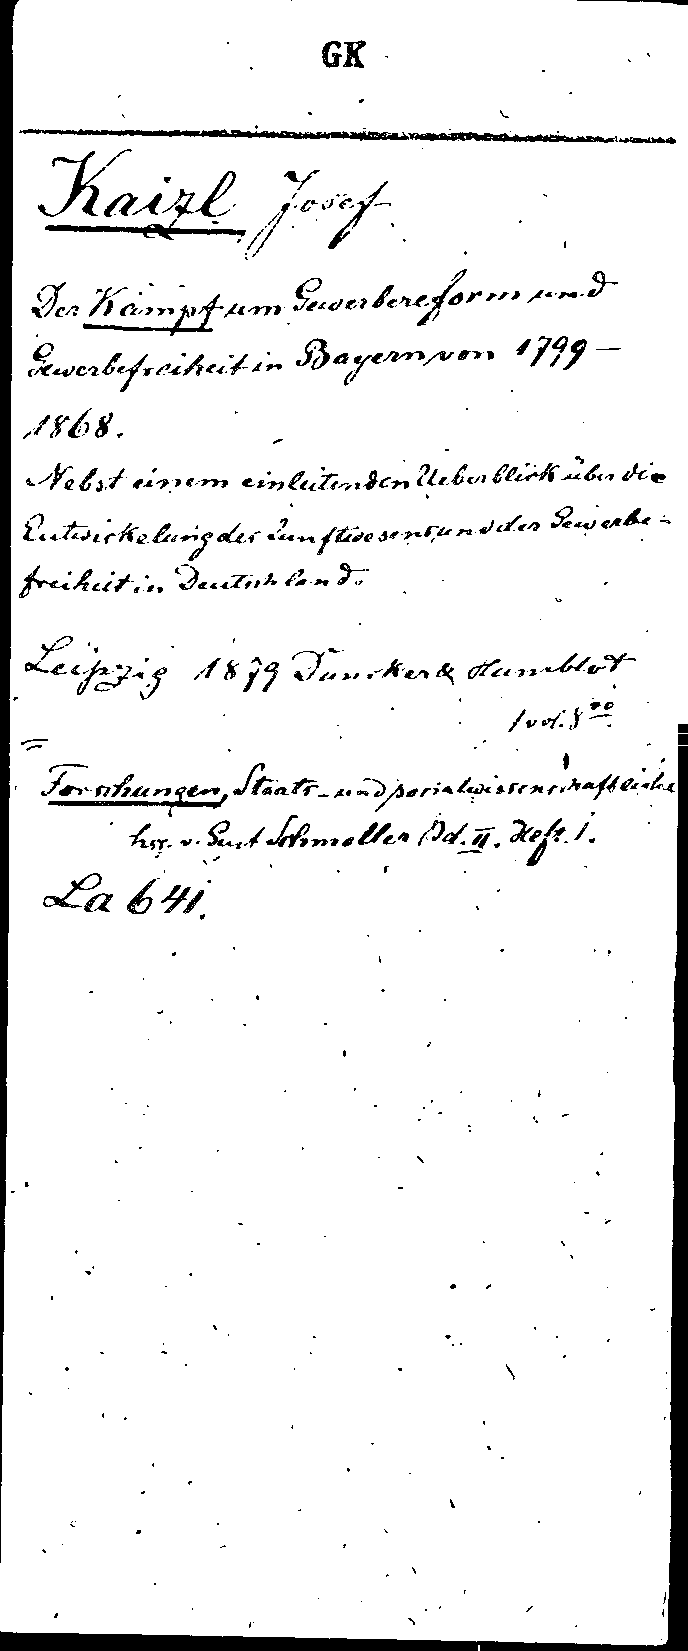 GK
Kaizl Josef
Der Kampf um Gewerbereform und
Gewerbefreiheit in Bayern von 1799 –
1868.
Nebst einem einleitenden Ueberblick über die
Entwickelung des Zunftwesens und der Gewerbe-
freiheit in Deutschland.
Leipzig 1879 Duncker & Humblot
1 vol. 8⁰⁰
=
Forschungen, Staats- und socialwissenschaftliche
hsg. v. Gust Schmoller Bd. II. Heft. 1.
La 641.